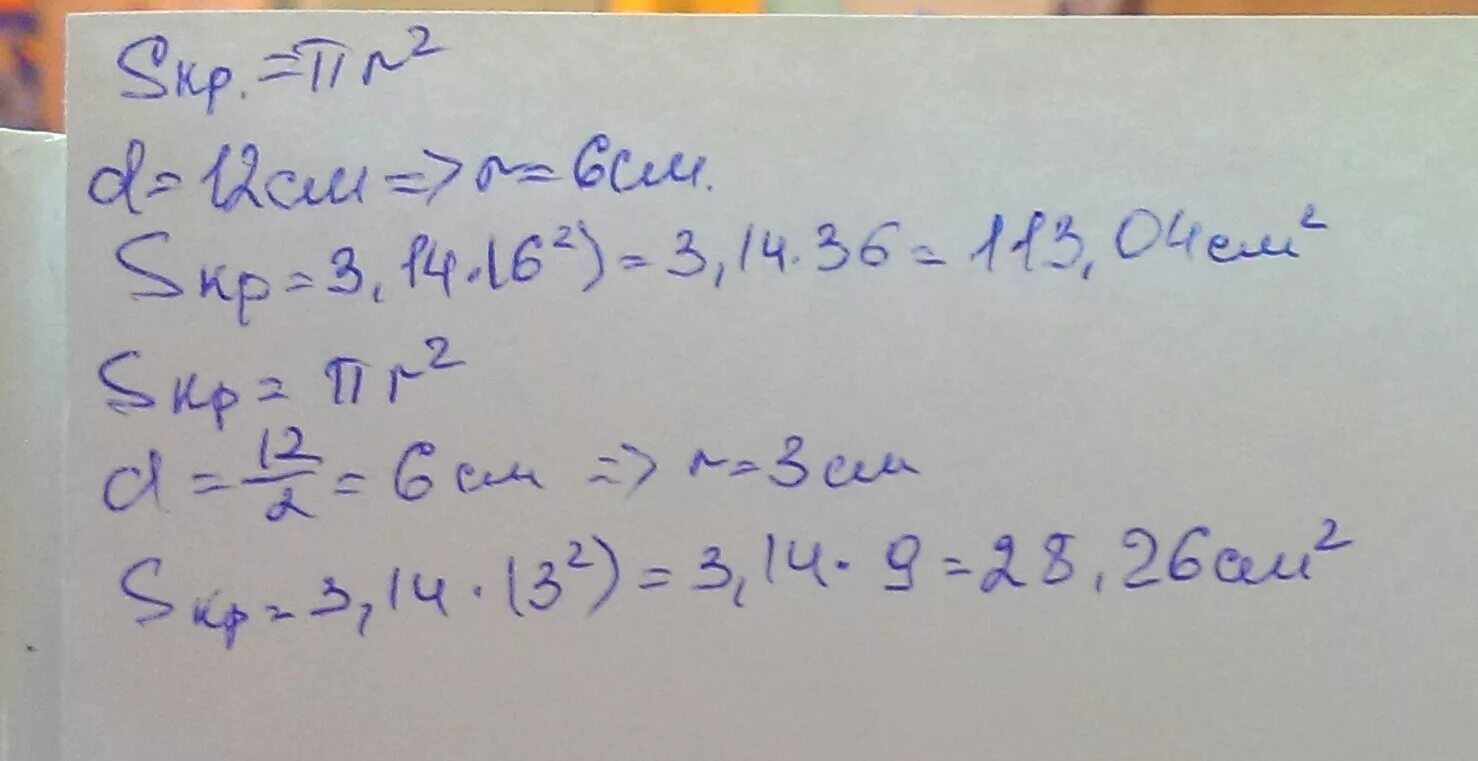 Sкр. = πr²
d = 12см => r = 6см.
Sкр = 3,14·(6²) = 3,14·36 = 113,04см²
Sкр = πr²
d = 12/2 = 6см => r = 3см
Sкр = 3,14·(3²) = 3,14·9 = 28,26см²